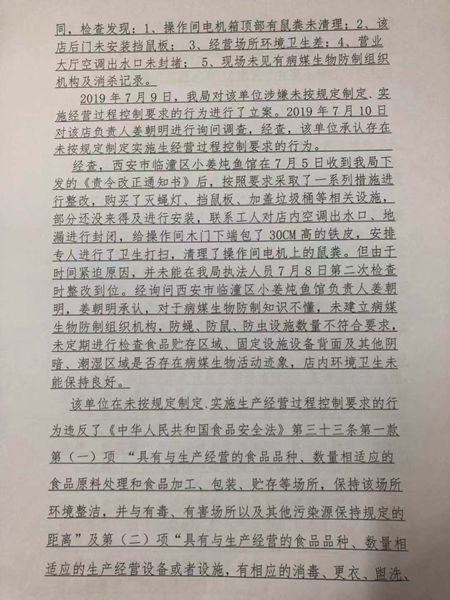 同，检查发现：1、操作间电机箱顶部有鼠粪未清理；2、该
店后门未安装挡鼠板； 3、经营场所环境卫生差；4、营业
大厅空调出水口未封堵； 5、现场未见有病媒生物防制组织
机构及消杀记录。
2019年7月9日，我局对该单位涉嫌未按规定制定、实
施经营过程控制要求的行为进行了立案。2019年7月10日
对该店负责人姜朝明进行询问调查，经查，该单位承认存在
未按规定制定实施生经营过程控制要求的行为。
经查，西安市临潼区小姜炖鱼馆在7月5日收到我局下
发的《责令改正通知书》后，按照要求采取了一系列措施进
行整改，购买了灭蝇灯、挡鼠板、加盖垃圾桶等相关设施，
部分还没来得及进行安装，联系工人对店内空调出水口、地
漏进行封闭，给操作间木门下端包了30CM高的铁皮，安排
专人进行了卫生打扫，清理了操作间电机上的鼠粪。但由于
时间紧迫原因，并未能在我局执法人员7月8日第二次检查
时整改到位。经询问西安市临潼区小姜炖鱼馆负责人姜朝
明，姜朝明承认，对于病媒生物防制知识不懂，未建立病媒
生物防制组织机构，防蝇、防鼠、防虫设施数量不符合要求，
未定期进行检查食品贮存区域、固定设施设备背面及其他阴
暗、潮湿区域是否存在病媒生物活动迹象，店内环境卫生未
能保持良好。
该单位在未按规定制定、实施生产经营过程控制要求的行
为违反了《中华人民共和国食品安全法》第三十三条第一款
第（一）项 “具有与生产经营的食品品种、数量相适应的
食品原料处理和食品加工、包装、贮存等场所，保持该场所
环境整洁，并与有毒、有害场所以及其他污染源保持规定的
距离”及第（二）项“具有与生产经营的食品品种、数量相
适应的生产经营设备或者设施，有相应的消毒、更衣、盥洗、